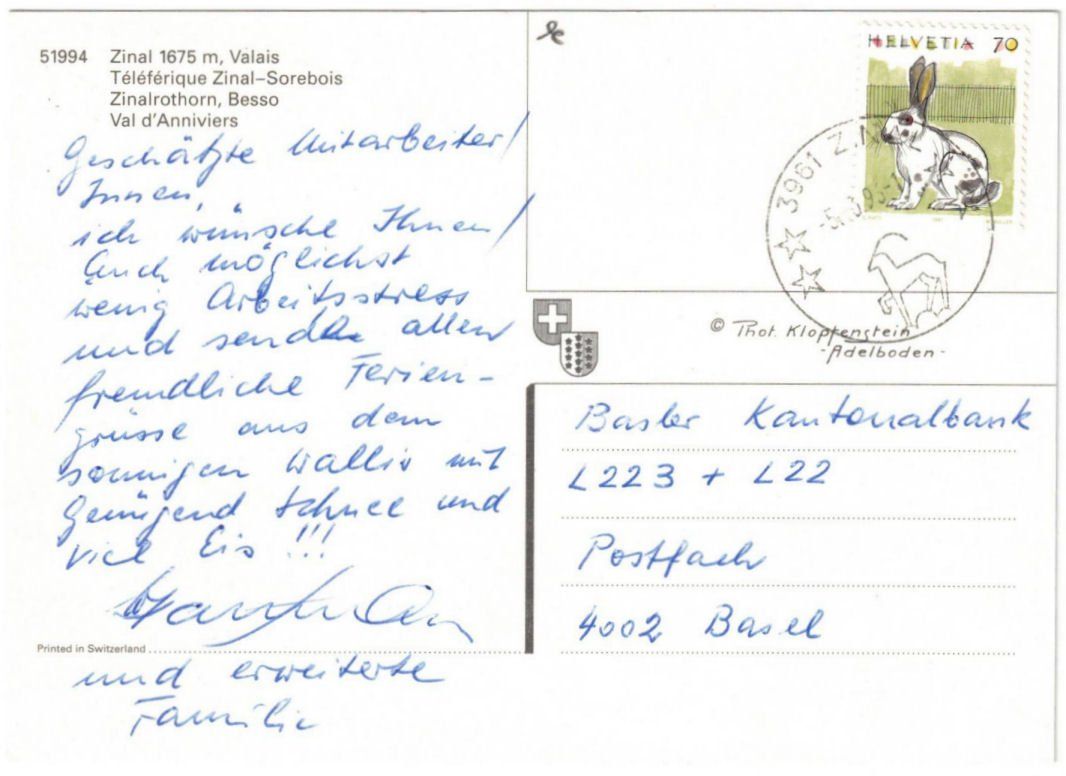 51994 Zinal 1675 m, Valais
Téléférique Zinal–Sorebois
Zinalrothorn, Besso
Val d'Anniviers
Geschätzte Mitarbeiter/
Innen,
ich wünsche Ihnen/
Euch möglichst
wenig Arbeitsstress
und sende allen
freundliche Ferien-
grüsse aus dem
sonnigen Wallis mit
Genügend Schnee und
viel Eis !!!
und erweiterte
Familie
Printed in Switzerland
HELVETIA 70
3961 ZIN
© Phot. Klopfenstein
-Adelboden-
Basler Kantonalbank
L223 + L22
Postfach
4002 Basel